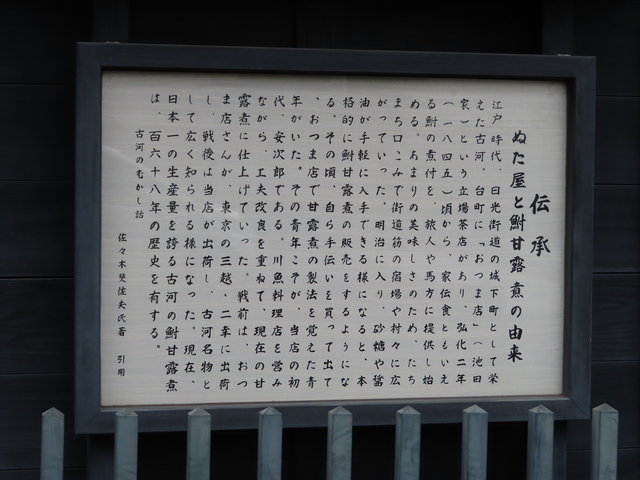 伝承
ぬた屋と鮒甘露煮の由来
江戸時代、日光街道の城下町として栄
えた古河。台町に「おつま店」(池田
家)という立場茶店があり、弘化二年
(一八四五)頃から、家伝食ともいえ
る鮒の煮付を、旅人や馬方に提供し始
める。あまりの美味しさのため、たち
まち口こみで街道筋の宿場や村々に広
がっていった。明治に入り、砂糖や醤
油が手軽に入手できる様になると、本
格的に鮒甘露煮の販売をするようにな
る。その頃、自ら手伝いを買って出て
、おつま店で甘露煮の製法を覚えた青
年がいた。その青年こそが、当店の初
代、安次郎である。川魚料理店を営み
ながら、工夫改良を重ねて、現在の甘
露煮に仕上げていった。戦前は、おつ
ま店さんが、東京の三越、二幸に出荷
し、戦後は当店が出荷し、古河名物と
して広く知られる様になった。現在、
日本一の生産量を誇る古河の鮒甘露煮
は、百六十八年の歴史を有する。
古河のむかし話
佐々木 佐夫氏著 引用